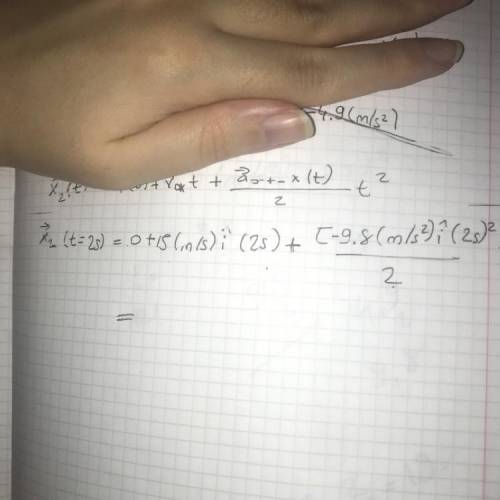 -4.9 (m/s²)
x⃗₂(t) + V₀ₓ t + a⃗ x(t) / 2 t²
x⃗₂ (t=2s) = 0 + 15 (m/s) î (2s) + [-9.8 (m/s²) î (2s)² / 2
=